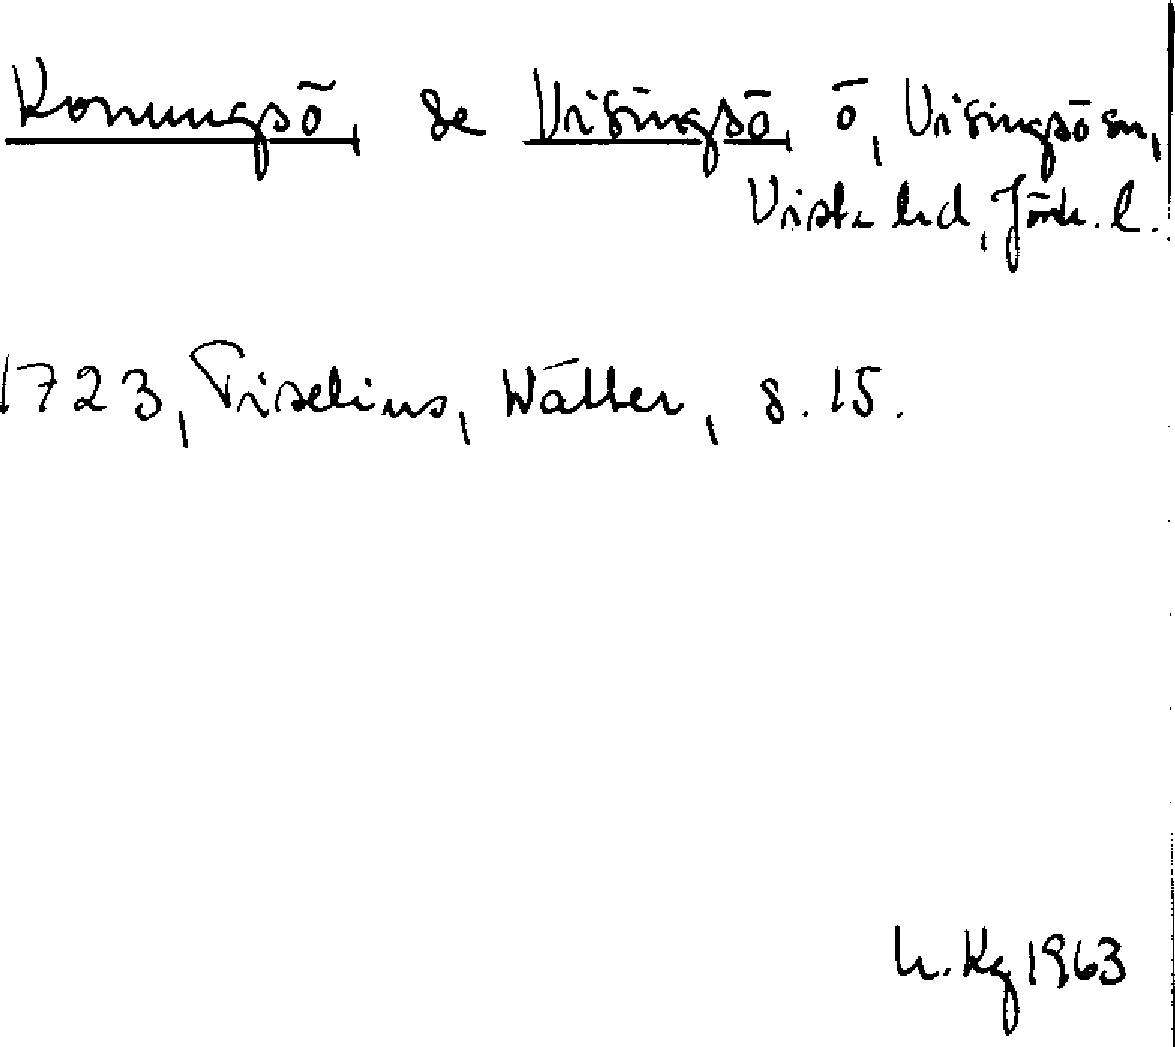 Konungsö, se Visingsö, ö, Visingsö sn,
Vista hd, Jönk. l.
1723, Tiselius, Wätter, s. 15.
h. Kg 1963